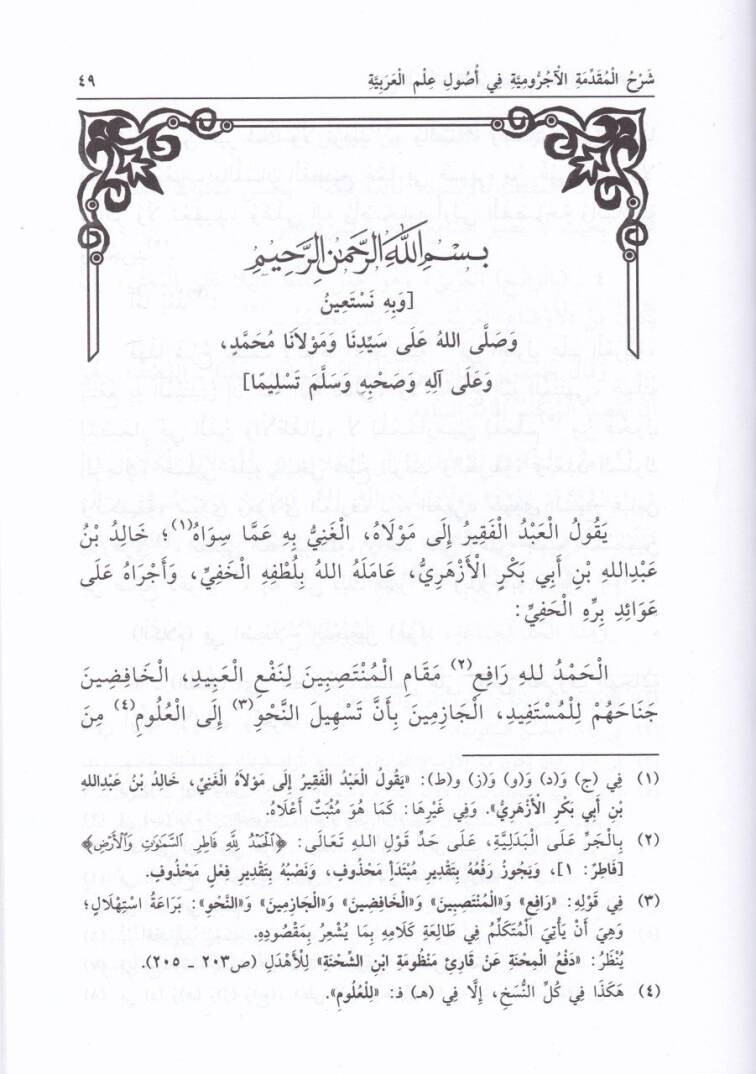 شَرْحُ الْمُقَدِّمَةِ الْآجُرُّومِيَّةِ فِي أُصُولِ عِلْمِ الْعَرَبِيَّةِ ٤٩
بِسْمِ اللَّهِ الرَّحْمَٰنِ الرَّحِيمِ
[وَبِهِ نَسْتَعِينُ
وَصَلَّى اللهُ عَلَى سَيِّدِنَا وَمَوْلَانَا مُحَمَّدٍ،
وَعَلَى آلِهِ وَصَحْبِهِ وَسَلَّمَ تَسْلِيمًا]
يَقُولُ الْعَبْدُ الْفَقِيرُ إِلَى مَوْلَاهُ، الْغَنِيُّ بِهِ عَمَّا سِوَاهُ(١)؛ خَالِدُ بْنُ
عَبْدِاللهِ بْنِ أَبِي بَكْرٍ الْأَزْهَرِيُّ، عَامَلَهُ اللهُ بِلُطْفِهِ الْخَفِيِّ، وَأَجْرَاهُ عَلَى
عَوَائِدِ بِرِّهِ الْحَفِيِّ:
الْحَمْدُ للهِ رَافِعِ(٢) مَقَامِ الْمُنْتَصِبِينَ لِنَفْعِ الْعَبِيدِ، الْخَافِضِينَ
جَنَاحَهُمْ لِلْمُسْتَفِيدِ، الْجَازِمِينَ بِأَنَّ تَسْهِيلَ النَّحْوِ(٣) إِلَى الْعُلُومِ(٤) مِنَ
(١) فِي (ج) وَ(د) وَ(و) وَ(ز) و(ط): «يَقُولُ الْعَبْدُ الْفَقِيرُ إِلَى مَوْلَاهُ الْغَنِيِّ، خَالِدُ بْنُ عَبْدِاللهِ
بْنِ أَبِي بَكْرٍ الْأَزْهَرِيُّ». وَفِي غَيْرِهَا: كَمَا هُوَ مُثْبَتٌ أَعْلَاهُ.
(٢) بِالْجَرِّ عَلَى الْبَدَلِيَّةِ، عَلَى حَدِّ قَوْلِ اللهِ تَعَالَى: ﴿ٱلْحَمْدُ لِلَّهِ فَاطِرِ ٱلسَّمَٰوَٰتِ وَٱلْأَرْضِ﴾
[فَاطِرٌ: ١]، وَيَجُوزُ رَفْعُهُ بِتَقْدِيرِ مُبْتَدَأٍ مَحْذُوفٍ، وَنَصْبُهُ بِتَقْدِيرِ فِعْلٍ مَحْذُوفٍ.
(٣) فِي قَوْلِهِ: «رَافِعِ» وَ«الْمُنْتَصِبِينَ» وَ«الْخَافِضِينَ» وَ«الْجَازِمِينَ» وَ«النَّحْوِ»: بَرَاعَةُ اسْتِهْلَالٍ؛
وَهِيَ أَنْ يَأْتِيَ الْمُتَكَلِّمُ فِي طَالِعَةِ كَلَامِهِ بِمَا يُشْعِرُ بِمَقْصُودِهِ.
يُنْظَرُ: «دَفْعُ الْمِحْنَةِ عَنْ قَارِئِ مَنْظُومَةِ ابْنِ الشِّحْنَةِ» لِلْأَهْدَلِ (ص٢٠٣ - ٢٠٥).
(٤) هَكَذَا فِي كُلِّ النُّسَخِ، إِلَّا فِي (هـ) فَـ: «لِلْعُلُومِ».